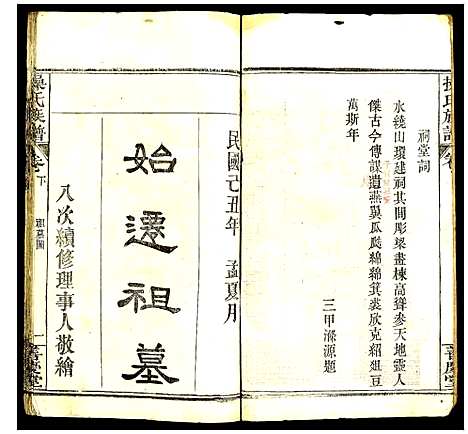 祠堂詞
水繞山環建祠其間彫梁畫棟高聳參天地靈人
傑古今傳謀遺燕翼瓜瓞綿綿箕裘欣克紹俎豆
萬斯年
三甲滌源題
民國己丑年 孟夏月
始遷祖墓
八次續修理事人敬繪
氏族譜
卷下
祖墓圖
一